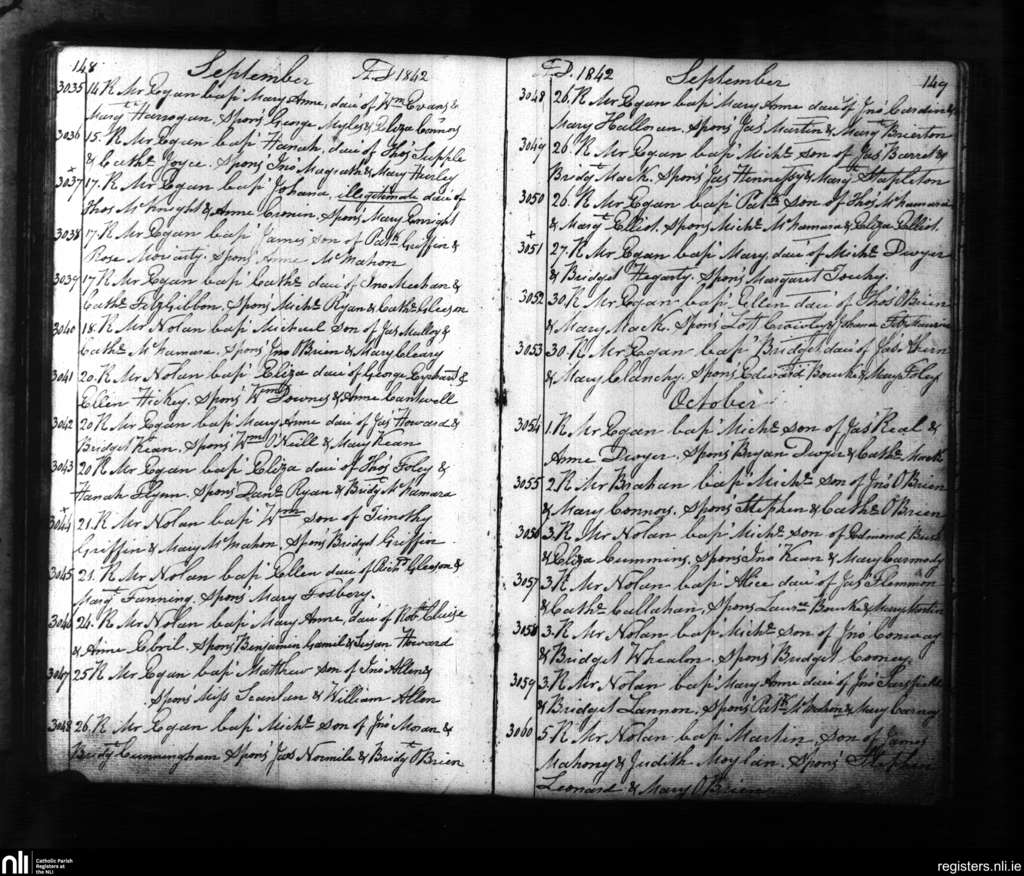 148 September A.D 1842
3035 14 R Mr Egan bap' Mary Anne, dau' of Wm Evans &
Marg't Harrogan. Spons' George Myles & Eliza Connors
3036 15. R Mr Egan bap' Hanah, dau' of Thos' Supple
& Cath'e Joyce. Spons' Jno Magrath & Mary Hurley
3037 17. R Mr Egan bap' Johana illegitimate dau' of
Thos McKnight & Anne Cronin. Spons' Mary Enright
3038 17. R Mr Egan bap' James son of Patk Griffin &
Rose Moriarty. Spons' Anne McMahon
3039 17 R Mr Egan bap' Cath'e dau' of Jno Meehan &
Cath'e FitzGibbon. Spons' Mich'l Ryan & Cath'e Gleeson
3040 18. R Mr Nolan bap' Micheal son of Jas Mulloy &
Cath'e McNamara. Spons' Jno O'Brien & Mary Cleary
3041 20. R Mr Nolan bap' Eliza dau' of George &
Ellen Hickey. Spons' Wm Downes & Anne Cantwell
3042 20 R Mr Egan bap' Mary Anne dau' of Jas' Howard &
Bridget Kean. Spons' Wm O'Neill & Mary Kean
3043 20 R Mr Egan bap' Eliza dau' of Thos' Foley &
Hanah Flynn. Spons' Dan'l Ryan & Bridg't McNamara
3044 21. R Mr Nolan bap' Wm son of Timothy
Griffin & Mary McMahon. Spons' Bridget Griffin
3045 21. R Mr Nolan bap' Ellen dau' of Rich'd Gleeson &
Marg't Fanning. Spons' Mary Fosbery.
3046 24. R Mr Nolan bap' Mary Anne, dau' of Rob't Cluise
& Anne Ebril. Spons' Benjamin Gamil & Susan Howard
3047 25 R Mr Egan bap' Matthew son of Jno Allen &
Spons' Miss Scanlan & William Allen
3048 26. R Mr Egan bap' Mich'l son of Jno' Moran &
Bridg't Cunningham Spons' Jas Normile & Bridg't O'Brien
A.D. 1842 September 149
3048 26. R Mr Egan bap' Mary Anne dau' of Jno' &
Mary Halloran. Spons' Jas' Martin & Marg't Brierton
3049 26. R Mr Egan bap' Mich'l son of Jas' Barret &
Bridg't Mack. Spons Jas Hennessy & Mary Stapleton
3050 26. R Mr Egan bap' Patk son of Thos' McNamara
& Marg't Elliot. Spons Mich'l McNamara & Eliza Elliot.
3051 27. R Mr Egan bap' Mary, dau' of Mich'l Dwyer
& Bridget Fegarty. Spons' Margaret Touhy.
3052 30. R Mr Egan bap' Ellen dau' of Thos' O'Brien
& Mary Mack. Spons' Lott Crowley & Johana FitzMaurice
3053 30. R Mr Egan bap' Bridget dau' of Jas'
& Mary Clanchy. Spons Edward Bourke & Mary Foley
October
3054 1. R Mr Egan bap' Mich'l son of Jas' Real &
Anne Dwyer. Spons' Bryan Dwyer & Cath'e
3055 2. R Mr Brahan bap' Mich'l son of Jno' O'Brien
& Mary Connors. Spons' Stephen & Cath'e O'Brien
3056 3. R Mr Nolan bap' Mich'l son of Edmond
& Eliza Cummins. Spons' Jno' Kean & Mary Carmody
3057 3. R Mr Nolan bap' Alice dau' of Jas' Flemmon
& Cath'e Callahan, Spons Laurce Bourke & Mary Martin
3058 3. R Mr Nolan bap' Mich'l son of Jno' Conway
& Bridget Whealon. Spons Bridget Comey.
3059 3. R Mr Nolan bap' Mary Anne dau' of Jno' Sarsfield
& Bridget Lannon. Spons' Patk McMahon & Mary Carney
3060 5. R Mr Nolan bap' Martin, son of James
Mahony & Judith Moylan. Spons' Stephen
Leonard & Mary O'Brien
nli Catholic Parish
Registers at
the NLI
registers.nli.ie